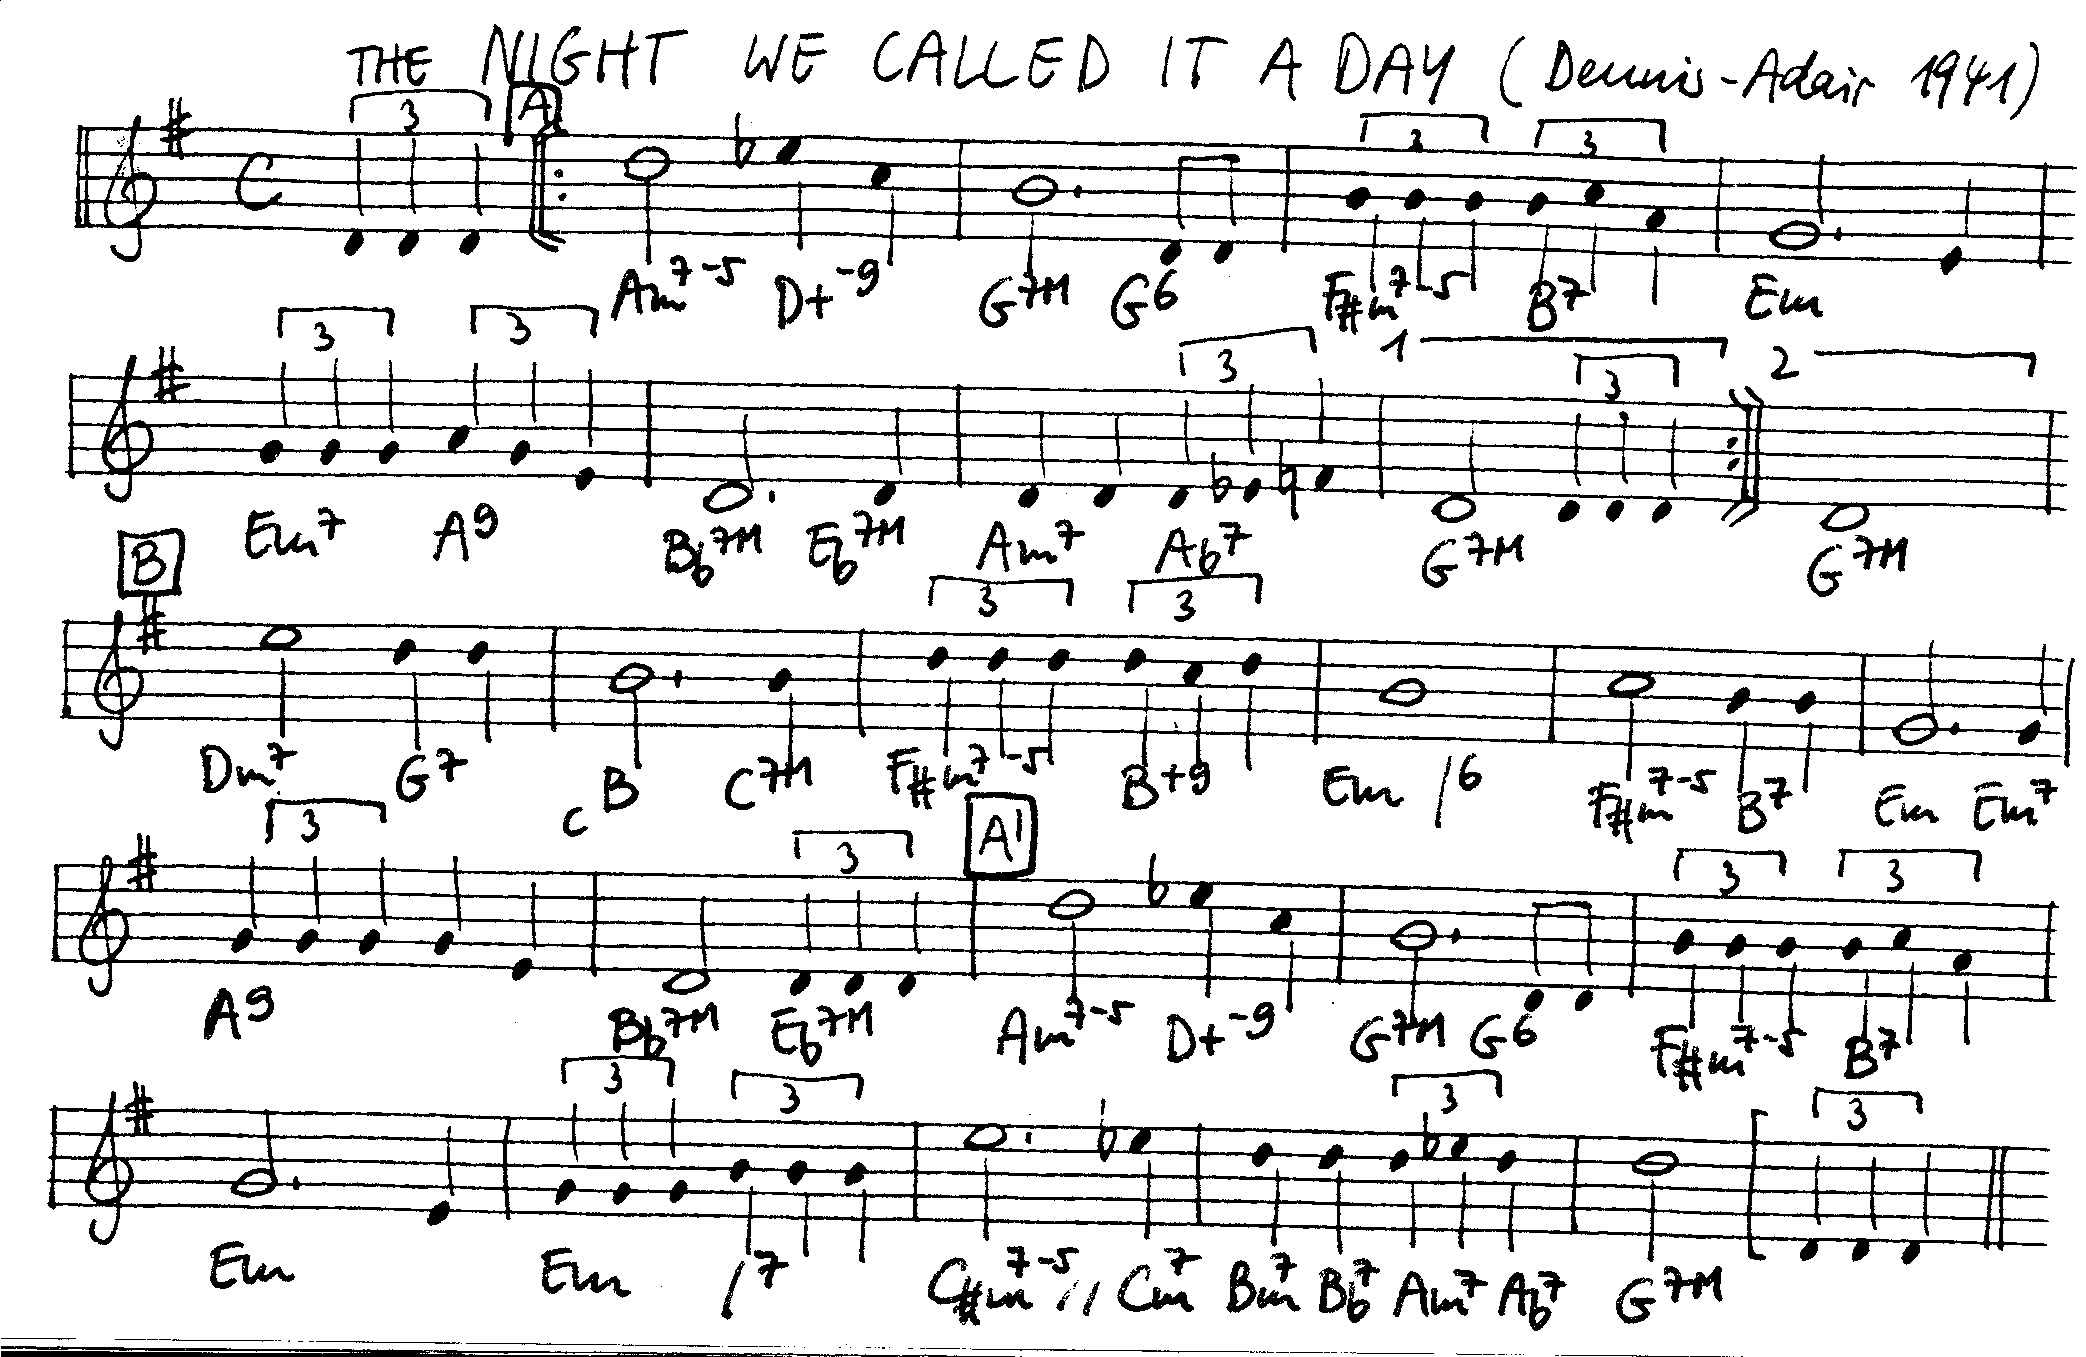 THE NIGHT WE CALLED IT A DAY (Dennis-Adair 1941)
3 A 3 3
C
Am7-5 D+-9 G7M G6 F#m7-5 B7 Em
3 3 3 1 3 2
Em7 A9 Bb7M Eb7M Am7 Ab7 G7M G7M
B 3 3
Dm7 G7 C B C7M F#m7-5 B+9 Em /6 F#m7-5 B7 Em Em7
3 3 A' 3 3
A9 Bb7M Eb7M Am7-5 D+-9 G7M G6 F#m7-5 B7
3 3 3 3
Em Em /7 C#m7-5 // Cm7 Bm7 Bb7 Am7 Ab7 G7M